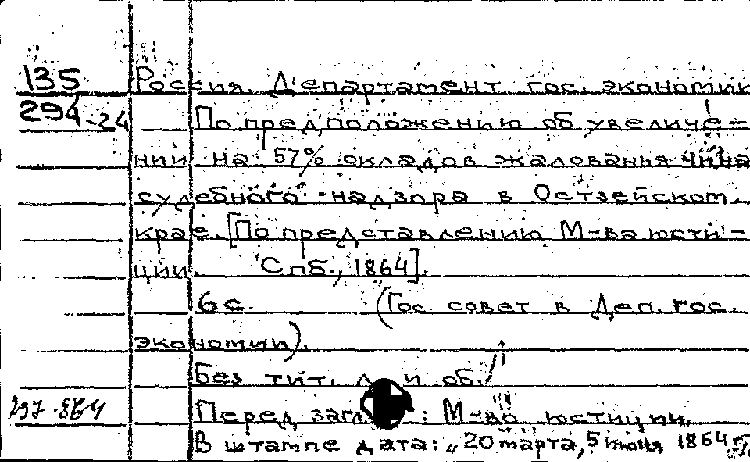 135 Россия. Департамент гос. экономик
294-24 По предположению об увеличе-
нии на 57% окладов жалования чина
судебного надзора в Остзейском
крае. [По представлению М-ва юсти-
ции. Спб., 1864].
6 с. (Гос. совет в Деп. гос.
экономии).
Без тит. л. и об.
297-864 Перед загл.: М-во юстиции.
В штампе дата: „20 марта, 5 июня 1864